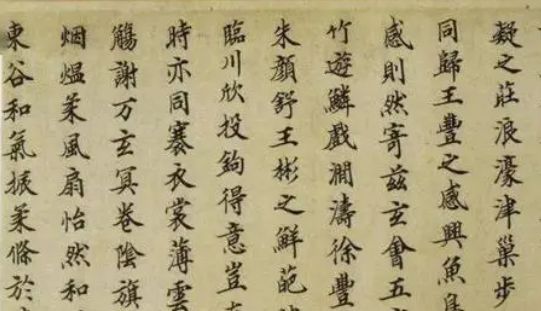 凝之莊浪濠津巢步
同歸王豐之感興魚
感則然寄茲玄會五
竹遊鱗戲澗濤徐豐
朱顏舒王彬之鮮葩
臨川欣投鉤得意豈
時亦同褰衣裳薄雲
觴謝万玄冥卷陰旗
烟熅柔風扇怡然和
東谷和氣振柔條於